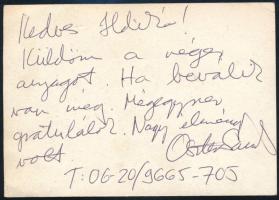 Kedves Ildikó!
Küldöm a végső
anyagot. Ha beválik
van még. Mégegyszer
gratulálok. Nagy élmény
volt.
T: 06-20/9665-705